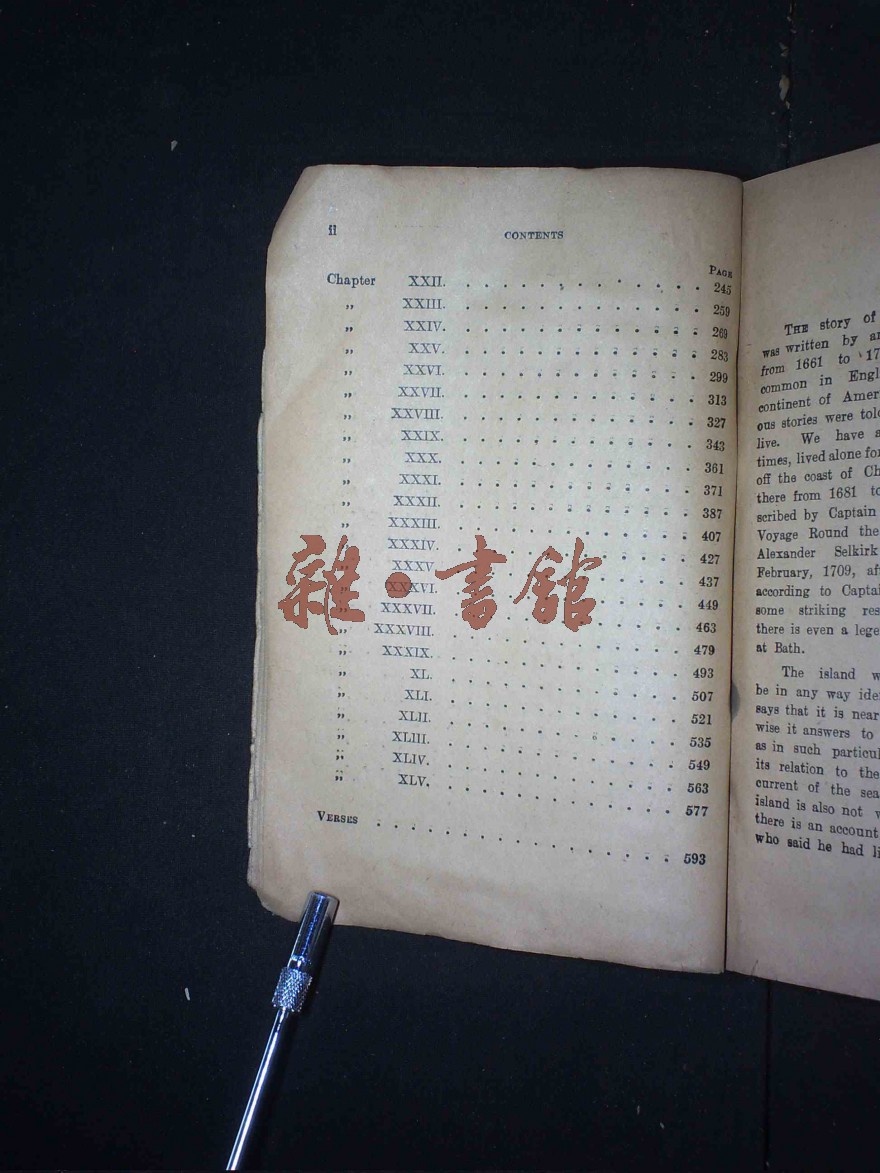 ii
CONTENTS
PAGE
Chapter XXII. . . . . . . . . . . . . . 245
„ XXIII. . . . . . . . . . . . . . 259
„ XXIV. . . . . . . . . . . . . . 269
„ XXV. . . . . . . . . . . . . . 283
„ XXVI. . . . . . . . . . . . . . 299
„ XXVII. . . . . . . . . . . . . . 313
„ XXVIII. . . . . . . . . . . . . . 327
„ XXIX. . . . . . . . . . . . . . 343
„ XXX. . . . . . . . . . . . . . 361
„ XXXI. . . . . . . . . . . . . . 371
„ XXXII. . . . . . . . . . . . . . 387
„ XXXIII. . . . . . . . . . . . . . 407
„ XXXIV. . . . . . . . . . . . . . 427
„ XXXV. . . . . . . . . . . . . . 437
„ XXXVI. . . . . . . . . . . . . . 449
„ XXXVII. . . . . . . . . . . . . . 463
„ XXXVIII. . . . . . . . . . . . . . 479
„ XXXIX. . . . . . . . . . . . . . 493
„ XL. . . . . . . . . . . . . . 507
„ XLI. . . . . . . . . . . . . . 521
„ XLII. . . . . . . . . . . . . . 535
„ XLIII. . . . . . . . . . . . . . 549
„ XLIV. . . . . . . . . . . . . . 563
„ XLV. . . . . . . . . . . . . . 577
VERSES . . . . . . . . . . . . . . 593
雜·書舘
THE story of
was written by
from 1661 to 17
common in Engl
continent of Amer
ous stories were tol
live. We have a
times, lived alone for
off the coast of Ch
there from 1681 to
scribed by Captain
Voyage Round the
Alexander Selkirk
February, 1709, af
according to Captai
some striking res
there is even a lege
at Bath.
The island w
be in any way ide
says that it is near
wise it answers to
as in such particul
its relation to the
current of the sea
island is also not
there is an account
who said he had li